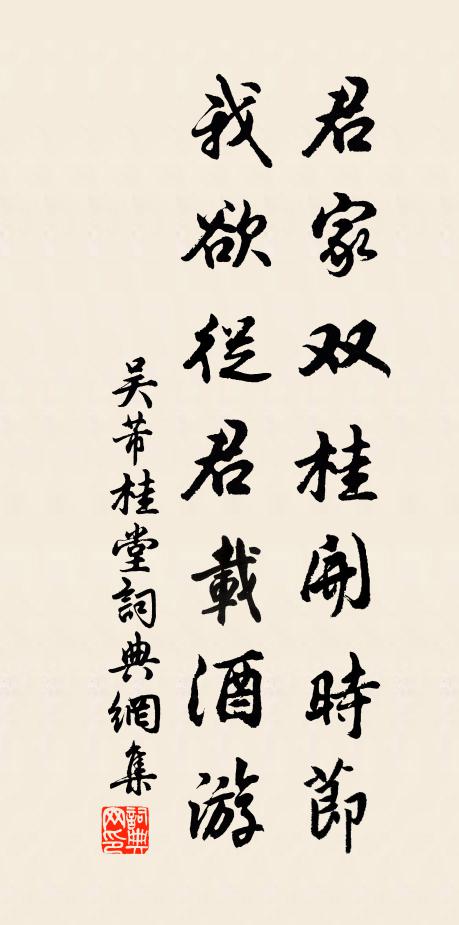 君家双桂開時節
我欲從君載酒游
吴芾桂堂詞典網集
詞典网印